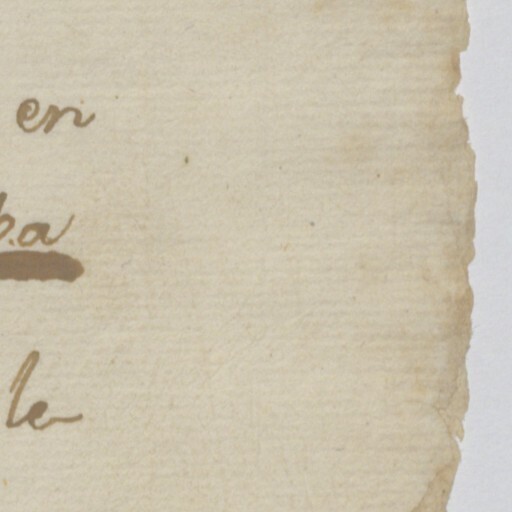 en
b.a
le